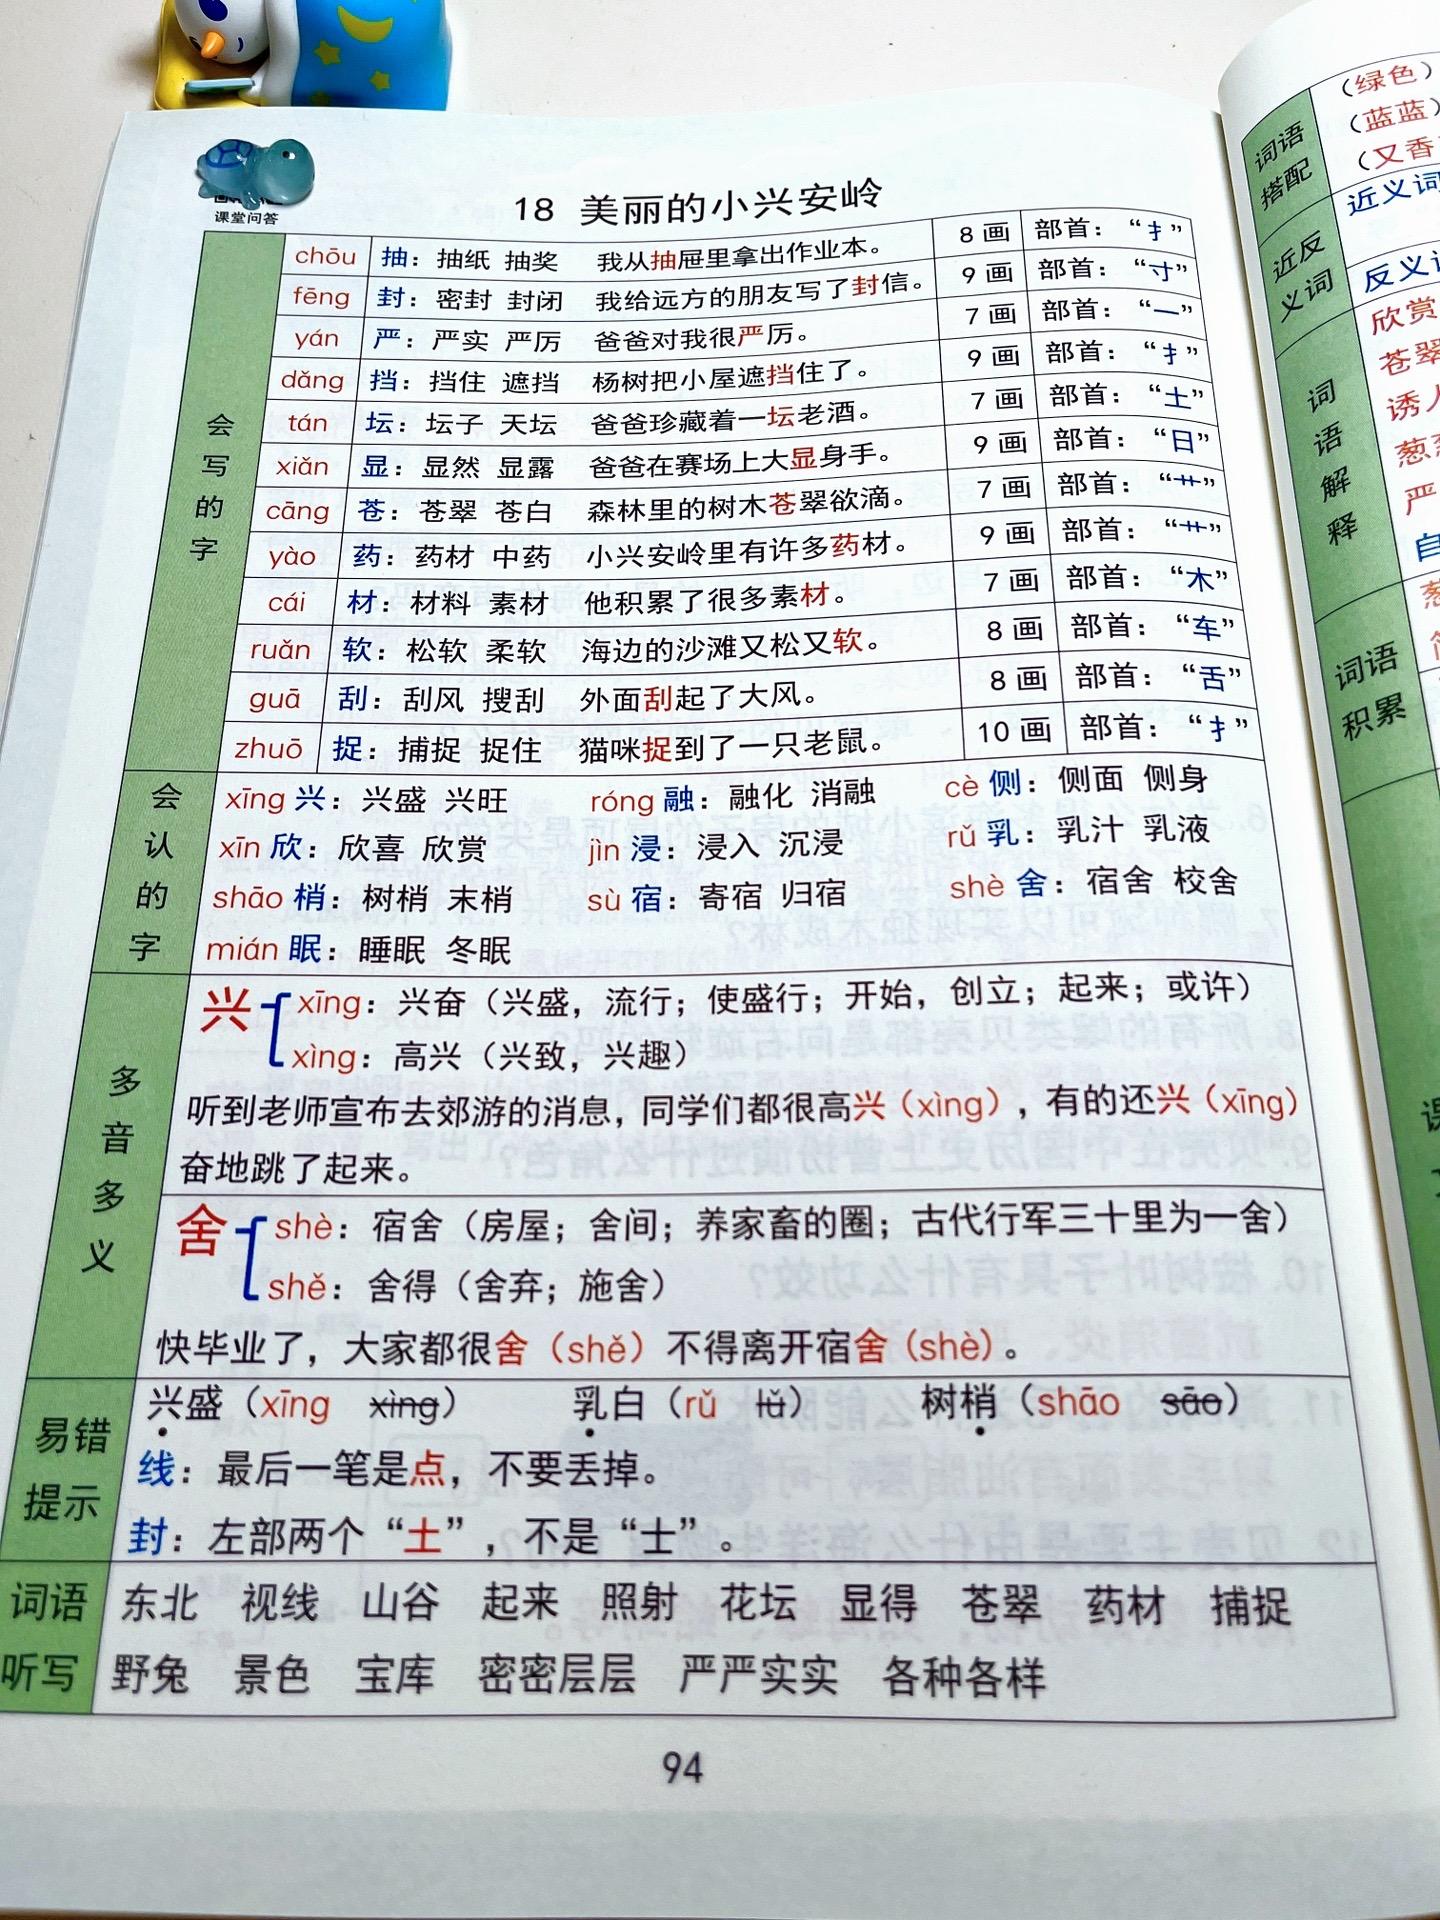 课堂问答
18 美丽的小兴安岭
会写的字
chōu 抽：抽纸 抽奖 我从抽屉里拿出作业本。 8 画 部首：“扌”
fēng 封：密封 封闭 我给远方的朋友写了封信。 9 画 部首：“寸”
yán 严：严实 严厉 爸爸对我很严厉。 7 画 部首：“一”
dǎng 挡：挡住 遮挡 杨树把小屋遮挡住了。 9 画 部首：“扌”
tán 坛：坛子 天坛 爸爸珍藏着一坛老酒。 7 画 部首：“土”
xiǎn 显：显然 显露 爸爸在赛场上大显身手。 9 画 部首：“日”
cāng 苍：苍翠 苍白 森林里的树木苍翠欲滴。 7 画 部首：“艹”
yào 药：药材 中药 小兴安岭里有许多药材。 9 画 部首：“艹”
cái 材：材料 素材 他积累了很多素材。 7 画 部首：“木”
ruǎn 软：松软 柔软 海边的沙滩又松又软。 8 画 部首：“车”
guā 刮：刮风 搜刮 外面刮起了大风。 8 画 部首：“舌”
zhuō 捉：捕捉 捉住 猫咪捉到了一只老鼠。 10 画 部首：“扌”
会认的字
xīng 兴：兴盛 兴旺 róng 融：融化 消融 cè 侧：侧面 侧身
xīn 欣：欣喜 欣赏 jìn 浸：浸入 沉浸 rǔ 乳：乳汁 乳液
shāo 梢：树梢 末梢 sù 宿：寄宿 归宿 shè 舍：宿舍 校舍
mián 眠：睡眠 冬眠
多音多义
兴
xīng：兴奋（兴盛，流行；使盛行；开始，创立；起来；或许）
xìng：高兴（兴致，兴趣）
听到老师宣布去郊游的消息，同学们都很高兴（xìng），有的还兴（xīng）
奋地跳了起来。
舍
shè：宿舍（房屋；舍间；养家畜的圈；古代行军三十里为一舍）
shě：舍得（舍弃；施舍）
快毕业了，大家都很舍（shě）不得离开宿舍（shè）。
易错提示
兴盛（xīng xìng） 乳白（rǔ lǔ） 树梢（shāo sāo）
线：最后一笔是点，不要丢掉。
封：左部两个“土”，不是“士”。
词语听写
东北 视线 山谷 起来 照射 花坛 显得 苍翠 药材 捕捉
野兔 景色 宝库 密密层层 严严实实 各种各样
94
词语搭配
（绿色）
（蓝蓝）
（又香
近反义词
近义词
反义词
词语解释
欣赏
苍翠
诱人
葱葱
严
自
词语积累